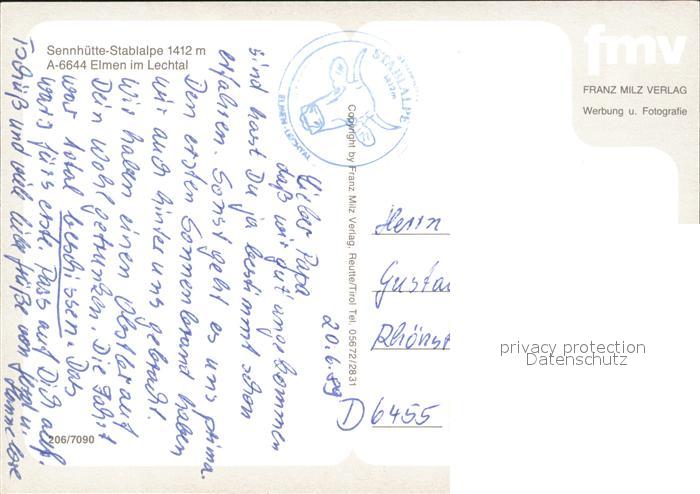 Sennhütte-Stablalpe 1412 m
A-6644 Elmen im Lechtal
STABLALPE
1412m
ELMEN
fmv
FRANZ MILZ VERLAG
Werbung u. Fotografie
Copyright by Franz Milz Verlag, Reutte/Tirol Tel. 05672/2831
20.6.89
Lieber Papa
daß wir gut angekommen
sind hast Du ja bestimmt schon
erfahren. Sonst geht es uns prima.
Den ersten Sonnenbrand haben
wir auch hinter uns gebracht.
Wir haben einen Obstler auf
Dein Wohl getrunken. Die Fahrt
war total beschissen. Das
war's fürs erste. Pass auf Dich auf.
Tschüß und viele liebe Grüße von u.
Hannelore
Herrn
Gusta
Rhönst
D 6455
206/7090
privacy protection
Datenschutz